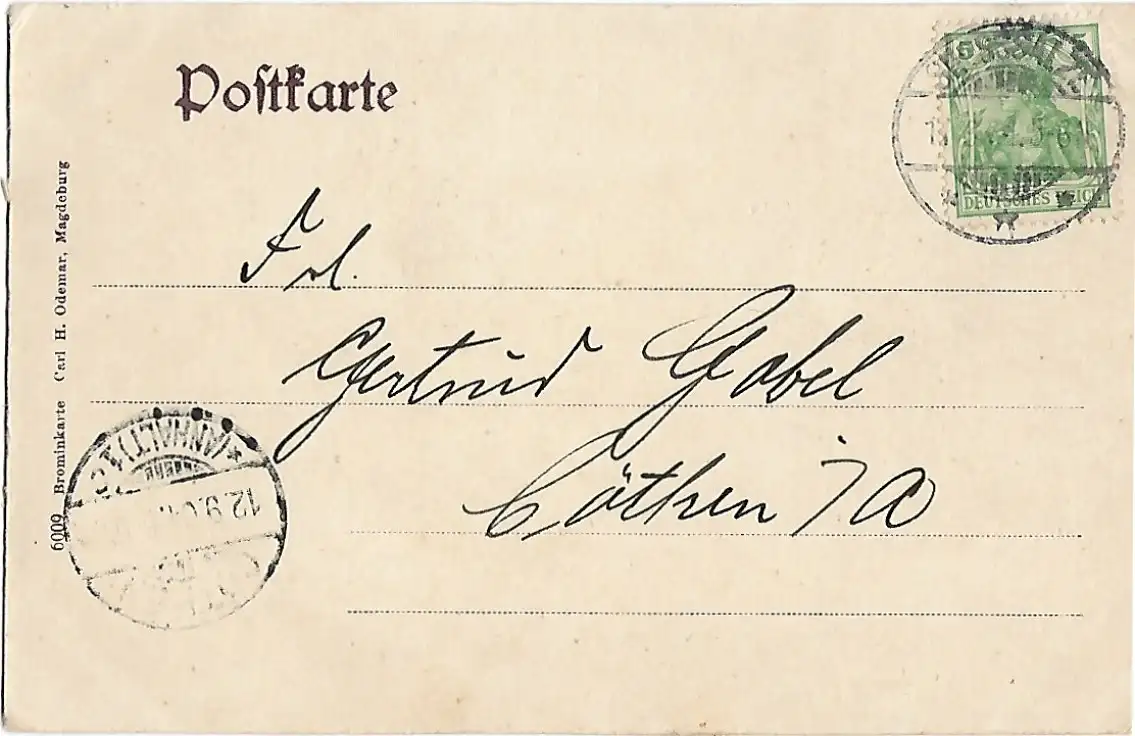 Postkarte
5
DEUTSCHES REICH
Frl.
Gertrud Gabel
Cöthen i/A
(ANHALT)
12.9.0
6009 Brominkarte Carl H. Odemar, Magdeburg